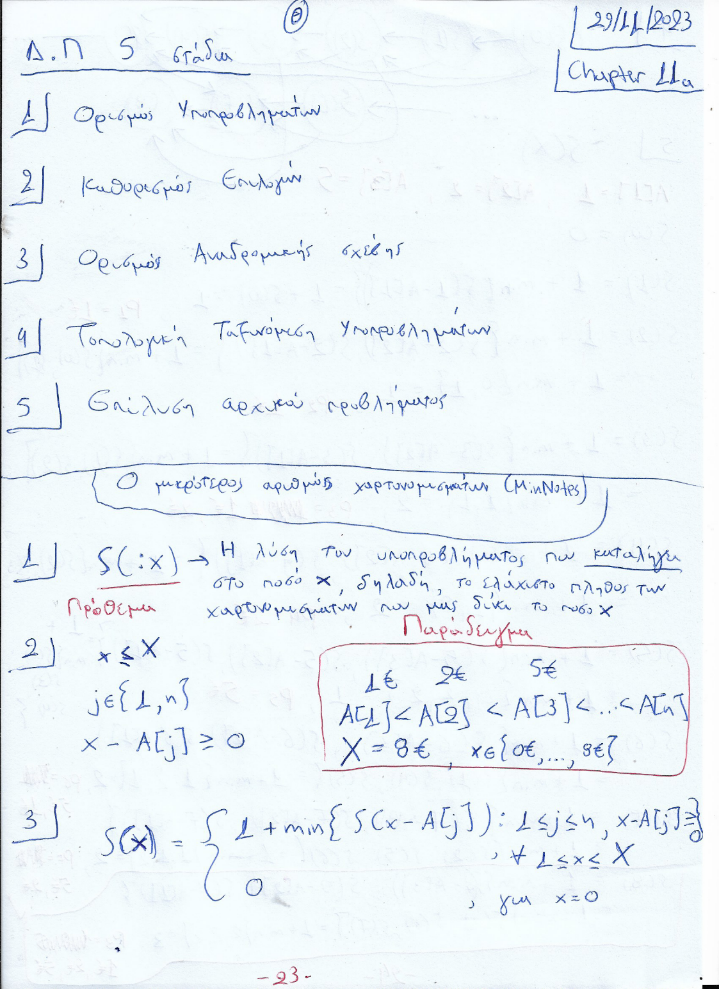 Θ
29/11/2023
Chapter 11a
Δ.Π 5 στάδια
1] Ορισμός Υποπροβλημάτων
2] Καθορισμός Επιλογών
3] Ορισμός Αναδρομικής σχέσης
4] Τοπολογική Ταξινόμιση Υποπροβλημάτων
5] Επίλυση αρχικού προβλήματος
Ο μικρότερος αριθμός χαρτονομισμάτων (MinNotes)
1] S(:x) → Η λύση του υποπροβλήματος που καταλήγει
στο ποσό x, δηλαδή, το ελάχιστο πλήθος των
Πρόθεμα χαρτονομισμάτων που μας δίνει το ποσο x
Παράδειγμα
2] x ≤ X
j∈{1,n}
x - A[j] ≥ 0
1€ 2€ 5€
A[1] < A[2] < A[3] < ... < A[n]
X = 8€, x∈{0€,...,8€}
3] S(x) = { 1 + min{ S(x-A[j]) : 1≤j≤n, x-A[j]≥0}
, ∀ 1≤x≤X
0 , για x=0
-23-